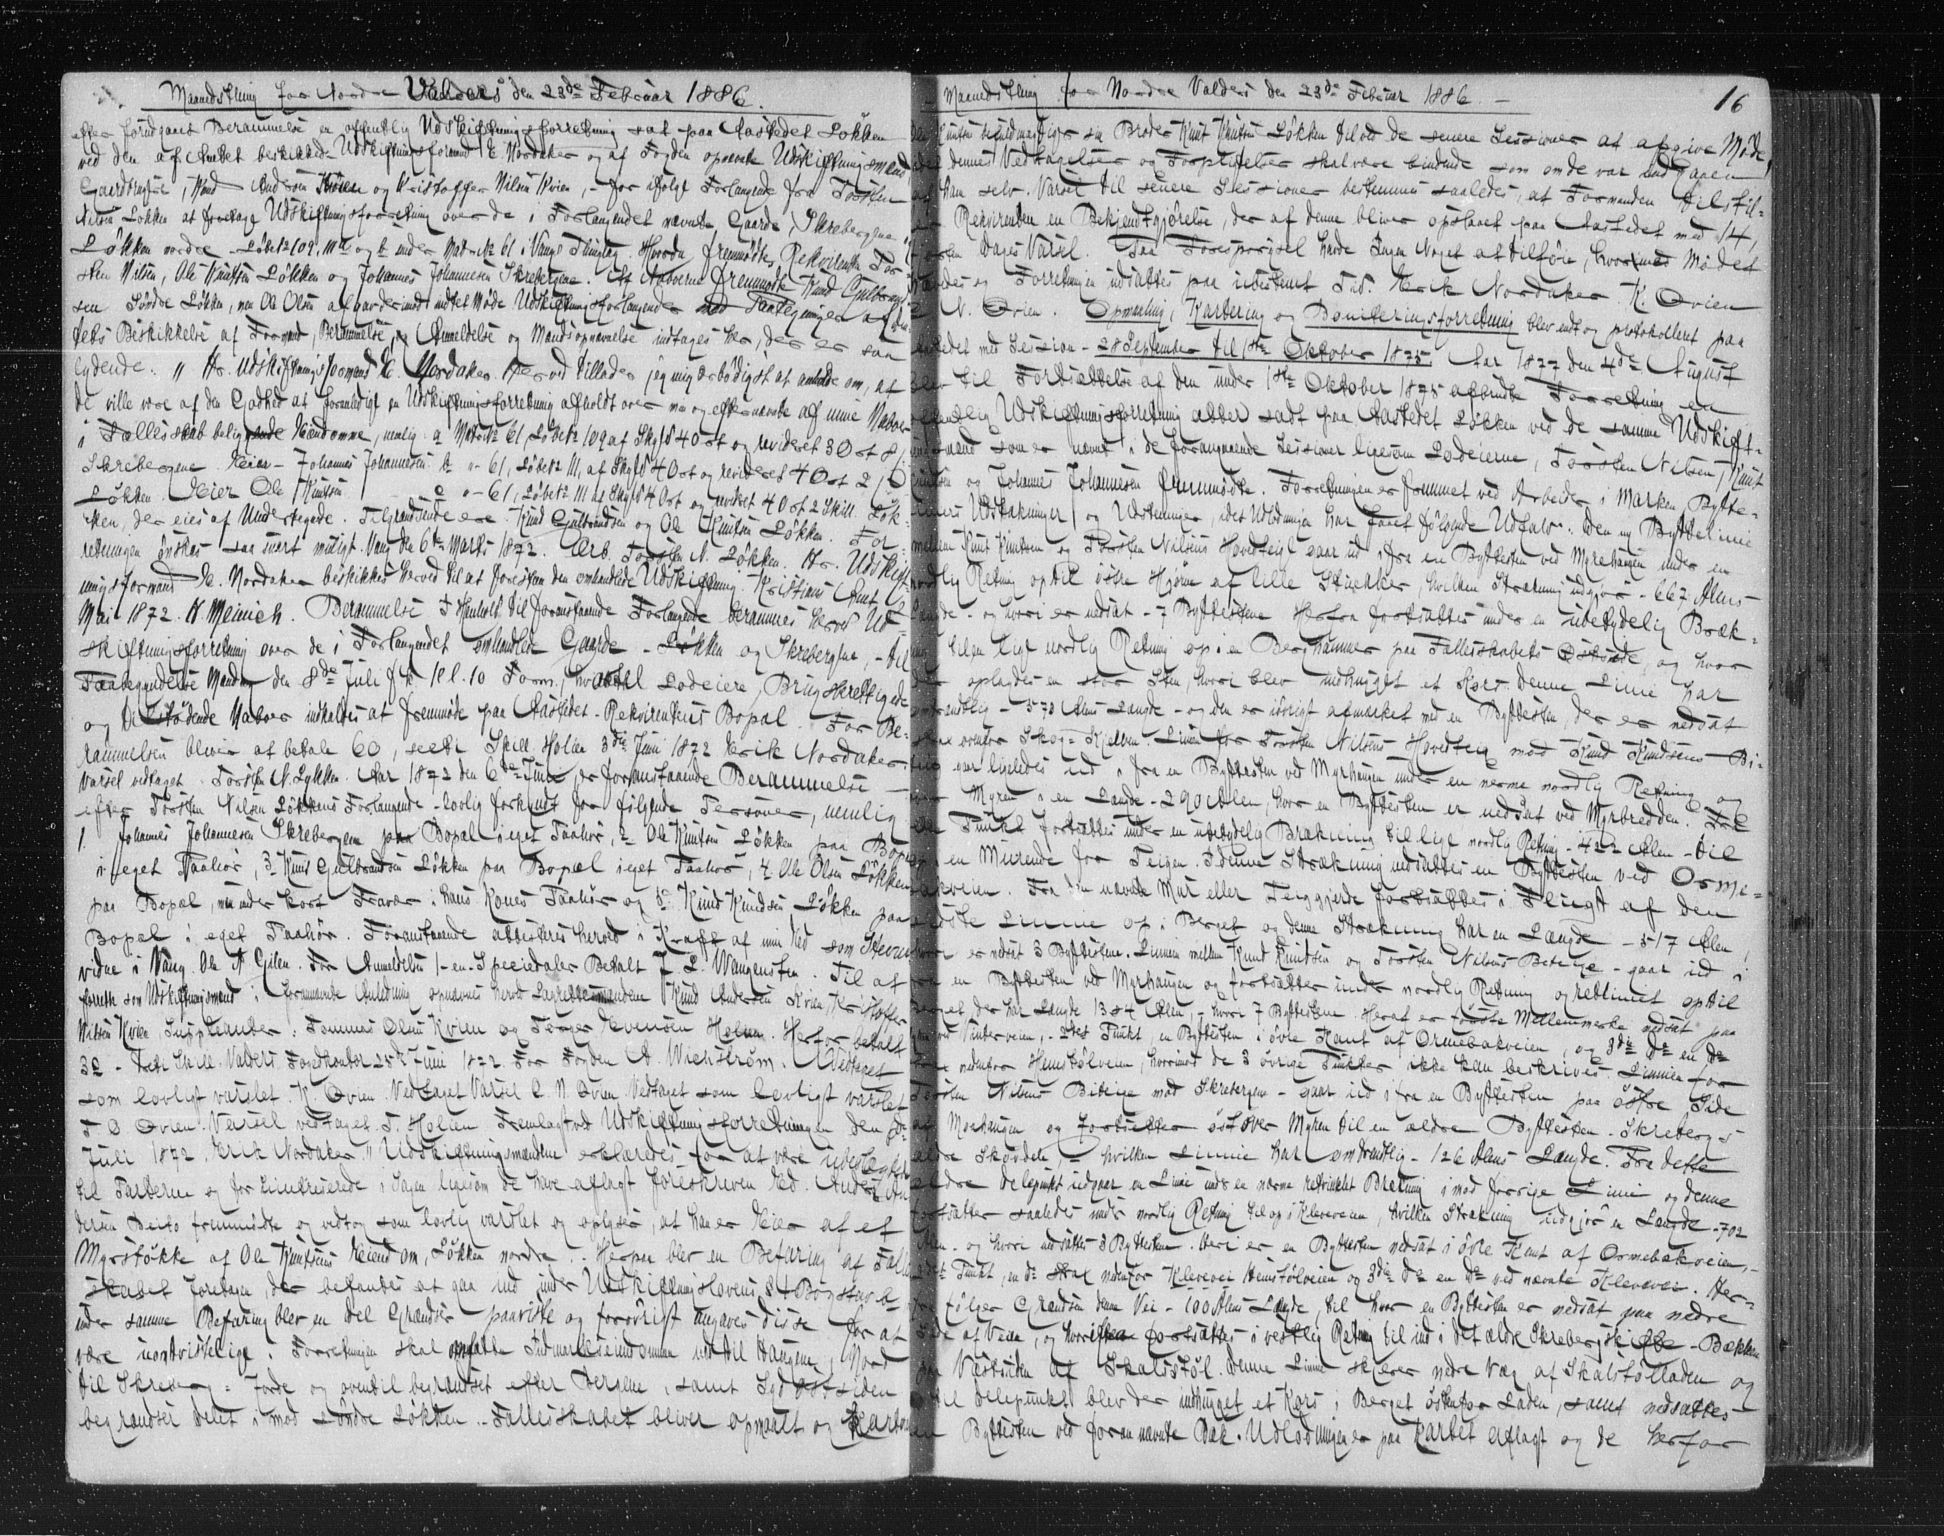 Maanedsthing for Nordre Valders den 23de Februar 1886.
efter forudgaaet Berammelse en offentlig Udskiftningsforretning sat paa Aastedet Løkken
ved den af Amtet beskikkede Udskiftningsformand E. Nordaker og af Fogden opnævnte Udskiftningsmænd
Gaardbrugere, Knud Andersen Kvien og Kristoffer Nilsen Kvien, - for ifølge Forlangende fra Torsten
Nilsen Løkken at foretage Udskiftningsforretning over de i Forlangendet nævnte Gaarde, Skrebergene
Løkken nordre Løbe No 109, 111a og b under Matr No 61 i Vangs Thinglag. Hvorda fremmødte Rekvirenten Tor-
sten Nilsen, Ole Knutsen Løkken og Johannes Johannesen Skrebergene. Af Naboerne fremmødte Knud Gulbrand-
sen Søndre Løkken, men Ole Olsen afgaardermed undlod Møde Udskiftningsforlangende med Paategninger af
tets Beskikkelse af Formand, Berammelse og Anmeldelse og Mandsopnævnelse indtages her, der er saa
lydende: " Hr. Udskiftningsformand E. Nordaker. Herved tillader jeg mig ærbødigst at anholde om, at
De ville være af den Godhed at foranledige en Udskiftningsforretning afholdt over min og efternævnte af mine Naboer
i Fællesskab beliggende Eiendomme, nemlig: a Matr No 61 Løbe No 109 af Skyld 40 ort og revideret 30 ort 8
Skrebergene Eier - Johannes Johannesen b " - 61, Løbe No 111, af Skyld 40 ort og revideret 40 ort 2
Løkken. Eier Ole Knutsen c " - 61, Løbe No 111 af Skyld 40 ort og revideret 40 ort 2 Skill. Løk-
ken, der eies af Undertegnede. Tilgrændsende ere Knud Gulbrandsen og Ole Knutsen Løkken. For-
retningen ønskes saa snart muligt. Vang den 6te Marts 1872. Ærb. Torsten N. Løkken. Hr. Udskift-
ningsformand E. Nordaker beskikkes herved til at forestaa den omhandlede Udskiftning. Kristians Amt
Mai 1872. H Meinich. Berammelse I Henhold til foranstaaende Forlangende berammes herved Ud-
skiftningsforretning over de i Forlangendet omhandlede Gaarde - Løkken og Skrebergene, - til
Paabegyndelse Mandag den 8de Juli f k Kl. 10 Form., hvortil Lodeiere, Brugsberettigede
og tilstødende Naboer indkaldes at fremmøde paa Aastedet - Rekvirentens Bopæl. For Be-
rammelsen bliver at betale 60, sexti Skill. Holien 3die Juni 1872 Erik Nordaker
Varsel vedtaget. Torsten N. Løkken. Aar 1872 den 6te Juni, er foranstaaende Berammelse
efter Torsten Nilsen Løkkens Forlangende - lovlig forkyndt for følgende Personer, nemlig
1. Johannes Johannesen Skrebergene paa Bopæl i eget Paahør, 2. Ole Knutsen Løkken paa Bopæl
i eget Paahør, 3. Knud Gulbrandsen Løkken paa Bopæl i eget Paahør, 4. Ole Olsen Løkken
paa Bopæl, men under kort Fravær i hans Kones Paahør og 5. Knud Knudsen Løkken paa
Bopæl i eget Paahør. Foranstaaende attesteres herved i Kraft af min Ed som Stevne-
vidne i Vang. Ole A Gilen. For Anmeldelsen 1 - en - Speciedaler Betalt L. Wangensten. Til at
forrette som Udskiftningsmænd i forannævnte Anledning opnævnes herved Lavrettesmændene Knud Andersen Kvien, Kristoffer
Nilsen Kvien. Supplianter: Tommas Olsen Kvien og Torger Evensen Holien. Herfor betalt
30 - Treti Skill. Valders Fogedkontor 25de Juni 1872. For Fogden A. Wickstrøm. Vedtaget
som lovligt varslet. K. Qvien. Vedtaget Varsel C. N. Qvien. Vedtaget som lovligt varslet
T O Qvien. Varsel vedtaget T. Holien Fremlagt ved Udskiftningsforretningen den 8de
Juli 1872. Erik Nordaker " Udskiftningsmændene erklæredes for at være ubeslægtede
til Parterne og for Uinteresserede i Sagen ligesom de have aflagt foreskreven Ed. Anders An-
dersen Beito fremmødte og vedtog som lovlig varslet og oplyser, at han er Eier af et
Myrstøkke af Ole Knutsens Eiendom, Løkken nordre. Herpaa blev en Befaring af Fælles-
skabet foretagen, der befandtes at gaa ind under Udskiftningslovens § 1 Bogstav b
under samme Befaring blev en Del Grændser paaviste og forøvrigt angaves disse for at
være uomtvistelige. Forretningen skal omfatte Indmarkseiendommen ned til Haugene, Nord
til Skreberg - Jorde og oventil begrændset efter Bergene, samt Sydøstsiden
begrændset Delet imod Søndre Løkken. Fællesskabet bliver opmaalt og Karte-
Maanedsthing for Nordre Valders den 23de Februar 1886. -
16
Knutsen befuldmægtiger sin Broder Knut Knutsen Løkken til ved de senere Sessioner at afgive Møde,
dennes Vedtagelser og Forpligtelser skal være bindende som om de var indgaaen
af Ham selv. Varsel til senere Sessioner bestemmes saaledes, at Formanden tilstil-
ler Rekvirenten en Bekjendtgjørelse, der af denne bliver opslaaet paa Aastedet med 14,
Dages Varsel. Paa Forespørgsel havde Ingen Noget at tilføie, hvormed Mødet
hævedes og Forretningen udsættes paa ubestemt Tid. Erik Nordaker K. Qvien
C. N. Qvien. Opmaaling, Kartering og Boniteringsforretning blev endt og protokolleret paa
Aastedet med Session - 28 September til 1ste Oktober 1875. Aar 1877 den 4de August
blev til Fortsættelse af den under 1ste Oktober 1875 afbrudte Forretning en
offentlig Udskiftningsforretning atter sadt paa Aastedet Løkken ved de samme Udskift-
ningsmænd som er nævnt i de foregaaende Sessioner ligesom Lodeierne, Torsten Nilsen, Knut
Knutsen og Johannes Johannesen fremmødte. Forretningen er fremmet ved Arbeider i Marken Bytte-
liniers Udstakninger og Udsteninger, idet Udlodningen har faaet følgende Udfald. Den ny Byttelinie
mellem Knut Knutsen og Torsten Nilsens Hovedteig gaar ud ifra en Byttesten ved Myrehaugen under en
nordlig Retning op til østre Hjørne af lille Stuekker, hvilken Strækning udgjør - 662 Alens
Længde - og hvori er nedsat - 7 Byttestene. Herfra fortsættes under en ubetydelig Bræk-
ning til en ligt nordlig Retning op i en Berghammer paa Fællesskabets Østside, og hvor
der oplagdes en stor Sten, hvori blev indhugget et Kors. Denne Linie har
omtrentlig - 570 Alens Længde - og den er iøvrigt afmærket med en Byttesten, der er nedsat
strax ovenfor Skog-Kjelven. Linien for Torsten Nilsens Hovedteig mod Knud Knudsens Bi-
teig gaar ligeledes ud ifra en Byttesten ved Myrhaugen under en nærme nordlig Retning og
over Myren i en Længde - 290 Alen, hvor en Byttesten er nedsat ved Myrbredden. Fra
dette Punkt fortsættes under en ubetydelig Brækning til ligt nordlig Retning - 422 Alen - til
en Murende for Teigen. I denne Strækning nedsættes en Byttesten ved Orme-
bakveien. Fra den nævnte Mur eller Teiggjerde fortsættes i Flugt af den
sidste Linnie op i Berget og denne Strækning har en Længde - 517 Alen,
hvori er nedsat 3 Byttestene. Linnien mellem Knud Knudsen og Torsten Nilsens Biteige - gaar ud i
fra en Byttesten ved Myrhaugen og fortsætter under nordlig Retning og retliniet op til
Berget der har Længde 1384 Alen, - hvori 7 Byttestene. Heraf er første Mellemmerke nedsat paa
Vinterveien, - 2det Punkt, en Byttesten i øvre Kant af Ormebakveien, og 3die Do en Do
nedenfor Hemstølveien, hvorimod de 3 øvrige Punkter ikke kan beskrives. Linnien for
Torsten Nilsens Biteige mod Skrebergene - gaar ud ifra en Byttesten paa østre Side
af Moehaugen og fortsætter østover Myren til en ældre Byttesten. Skrebergs-
ældre Skovdele, - hvilken Linnie har omtrentlig - 126 Alens Længde. Fra dette
ældre Delepunkt udgaar en Linie under en nærme retvinklet Brækning imod forrige Linie og denne
fortsætter saaledes under nordlig Retning til op i Kleveveien, hvilken Strækning udgjør en Længde - 702
Alen - og hvori nedsættes 3 Byttestene. Heri er en Byttesten nedsat i øvre Kant af Ormebakveien, -
2det Punkt, en do strax nedenfor Klevevei Hemstølveien og 3die do en do ved nævnte Klevevei. Her-
fra følger Grændsen denne Vei - 100 Alens Længde, til hvor en Byttesten er nedsat paa nedre
Side af Veien, og hvorefter fortsættes i vestlig Retning til ind i det ældre Skrebergskifte - Bækken
paa Vestsiden af Skalstøl. Denne Linie skjærer nedre Væg af Skalstølladen og
til Delepunkt blev der indhugget et Kors i Berget østenfor Laden, samt nedsættes
en Byttesten ved forannævnte Bæk. Udlodningen er paa Kartet aflagt og de herfor